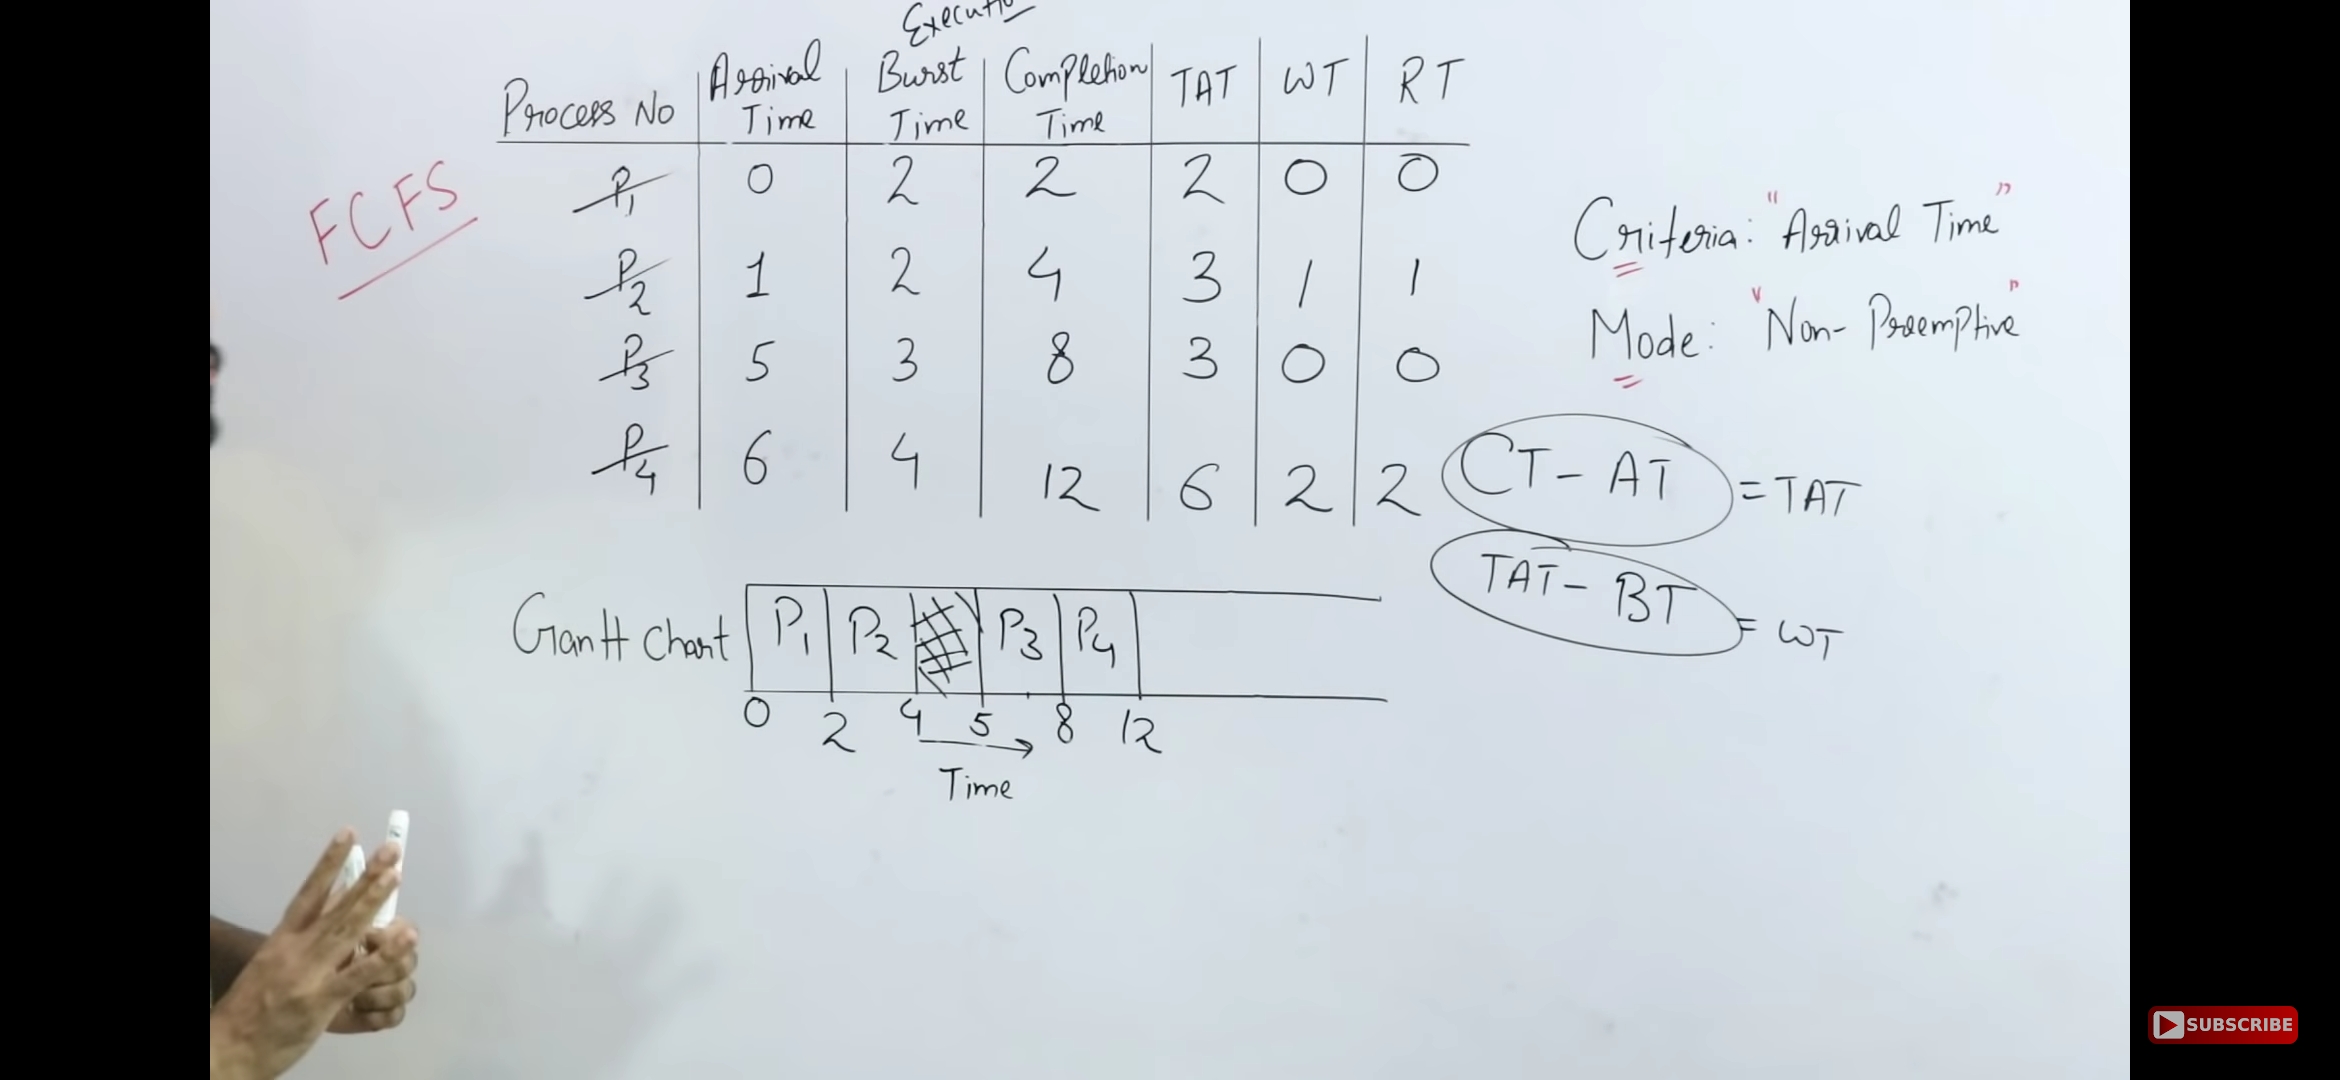 Executio
Process No Arrival Time Burst Time Completion Time TAT WT RT
P1 0 2 2 2 0 0
P2 1 2 4 3 1 1
P3 5 3 8 3 0 0
P4 6 4 12 6 2 2
FCFS
Criteria: "Arrival Time"
Mode: "Non-Preemptive"
CT - AT = TAT
TAT - BT = WT
Gantt Chart P1 P2 P3 P4
0 2 4 5 8 12
Time
SUBSCRIBE